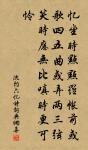 忆坐时点点罗帐前或
歌四五曲或弄两三弦
笑时应无比嗔时更可
怜
沈约六忆诗词典聊斋